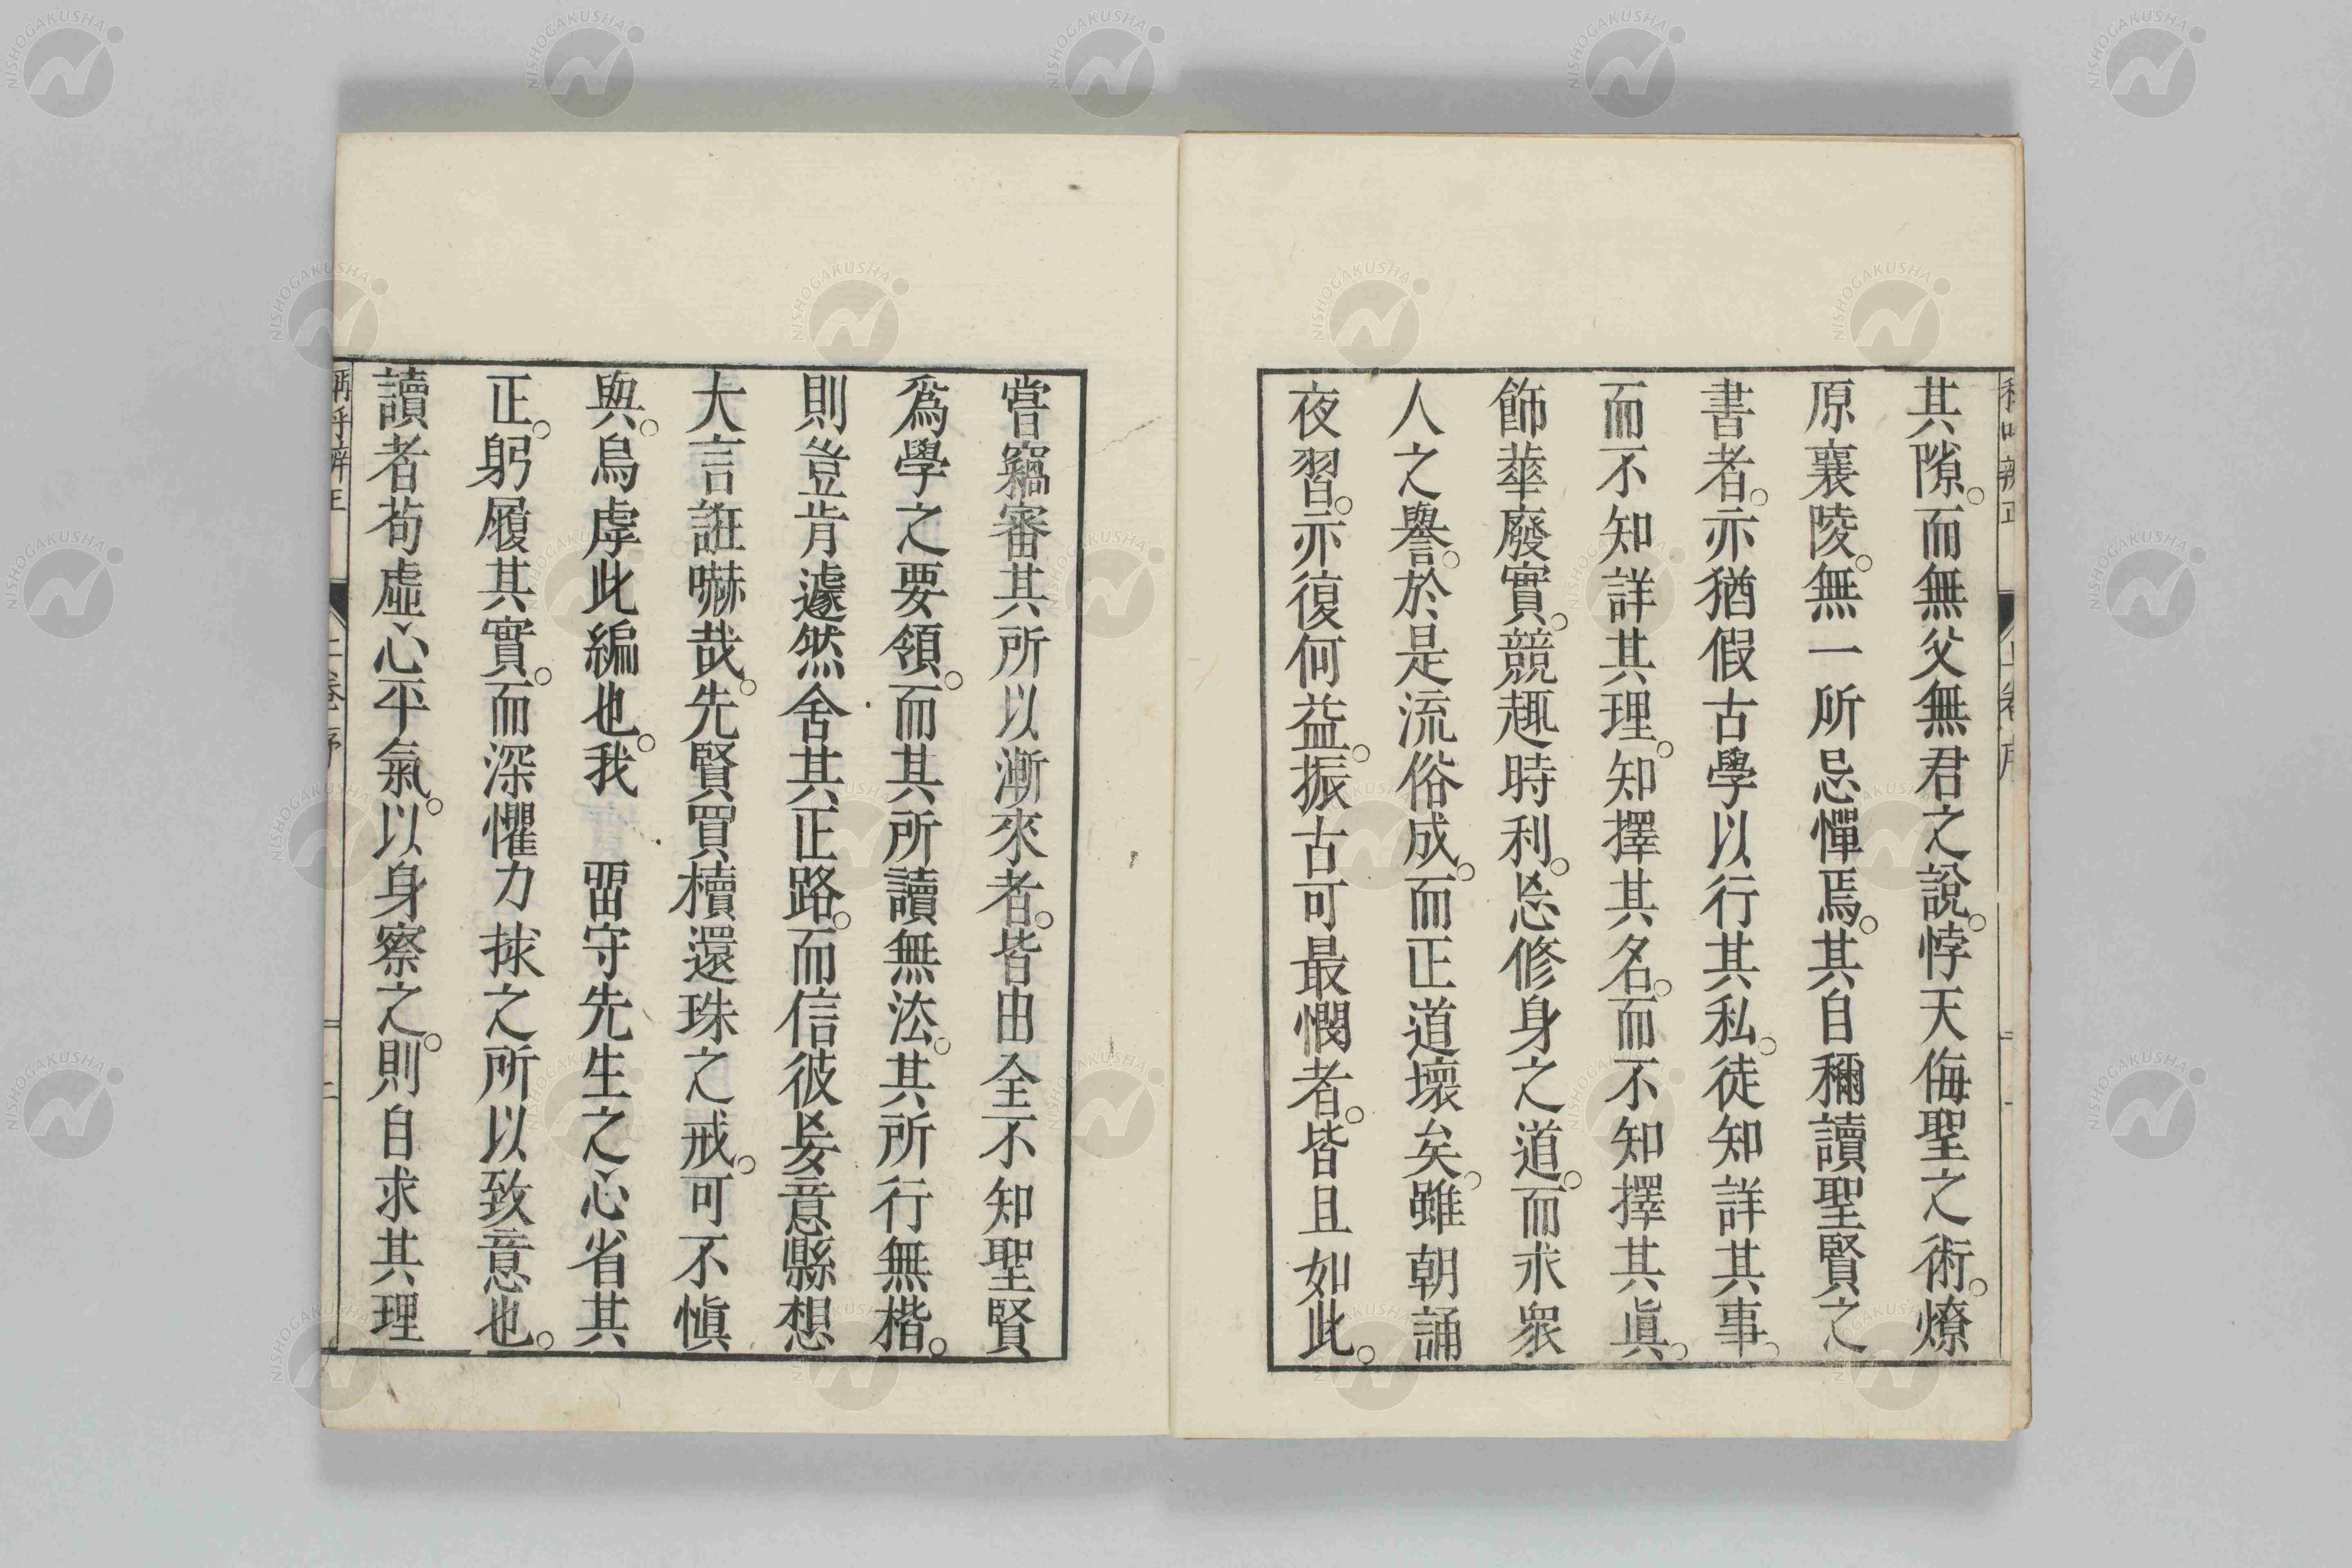 其隙。而無父無君之說。悖天侮聖之術。燎
原襄陵。無一所忌憚焉。其自稱讀聖賢之
書者。亦猶假古學以行其私。徒知詳其事。
而不知詳其理。知擇其名。而不知擇其眞。
飾華廢實。競趣時利。忘修身之道。而求衆
人之譽。於是流俗成。而正道壞矣。雖朝誦
夜習。亦復何益。振古可最憫者。皆且如此。
嘗竊審其所以漸來者。皆由全不知聖賢
爲學之要領。而其所讀無法。其所行無楷。
則豈肯遽然舍其正路。而信彼妄意縣想
大言誑嚇哉。先賢買櫝還珠之戒。可不愼
與。烏虖此編也。我 畱守先生之心省其
正。躬履其實。而深懼力捄之所以致意也。
讀者苟虛心平氣。以身察之。則自求其理
稱呼辨正 上卷序 二